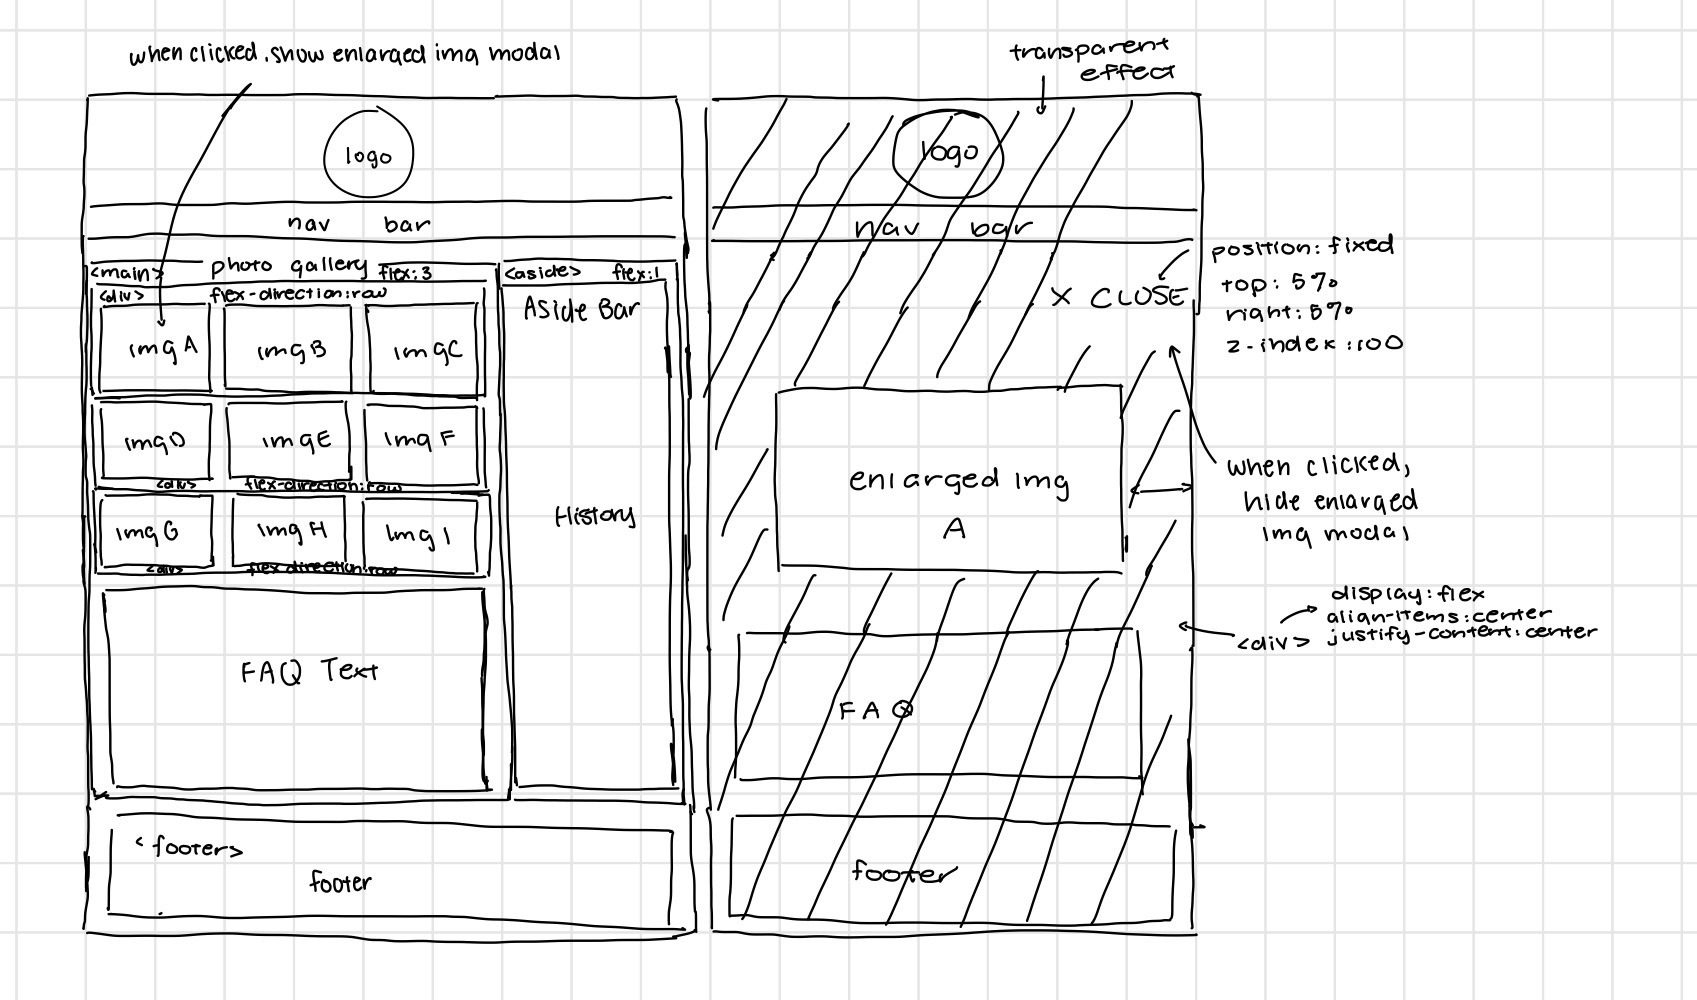 when clicked, show enlarged img modal
logo
nav bar
<main> photo gallery flex:3
<aside> flex:1
<div> flex-direction:row
Aside Bar
img A img B img C
img D img E img F
<div> flex-direction:row
History
img G img H Img I
<div> flex direction:row
FAQ Text
<footer>
footer
transparent
effect
logo
nav bar
X CLOSE
position: fixed
top: 5%
right: 5%
z-index: 100
enlarged Img
A
when clicked,
hide enlarged
img modal
display: flex
align-items: center
<div> justify-content: center
FAQ
footer